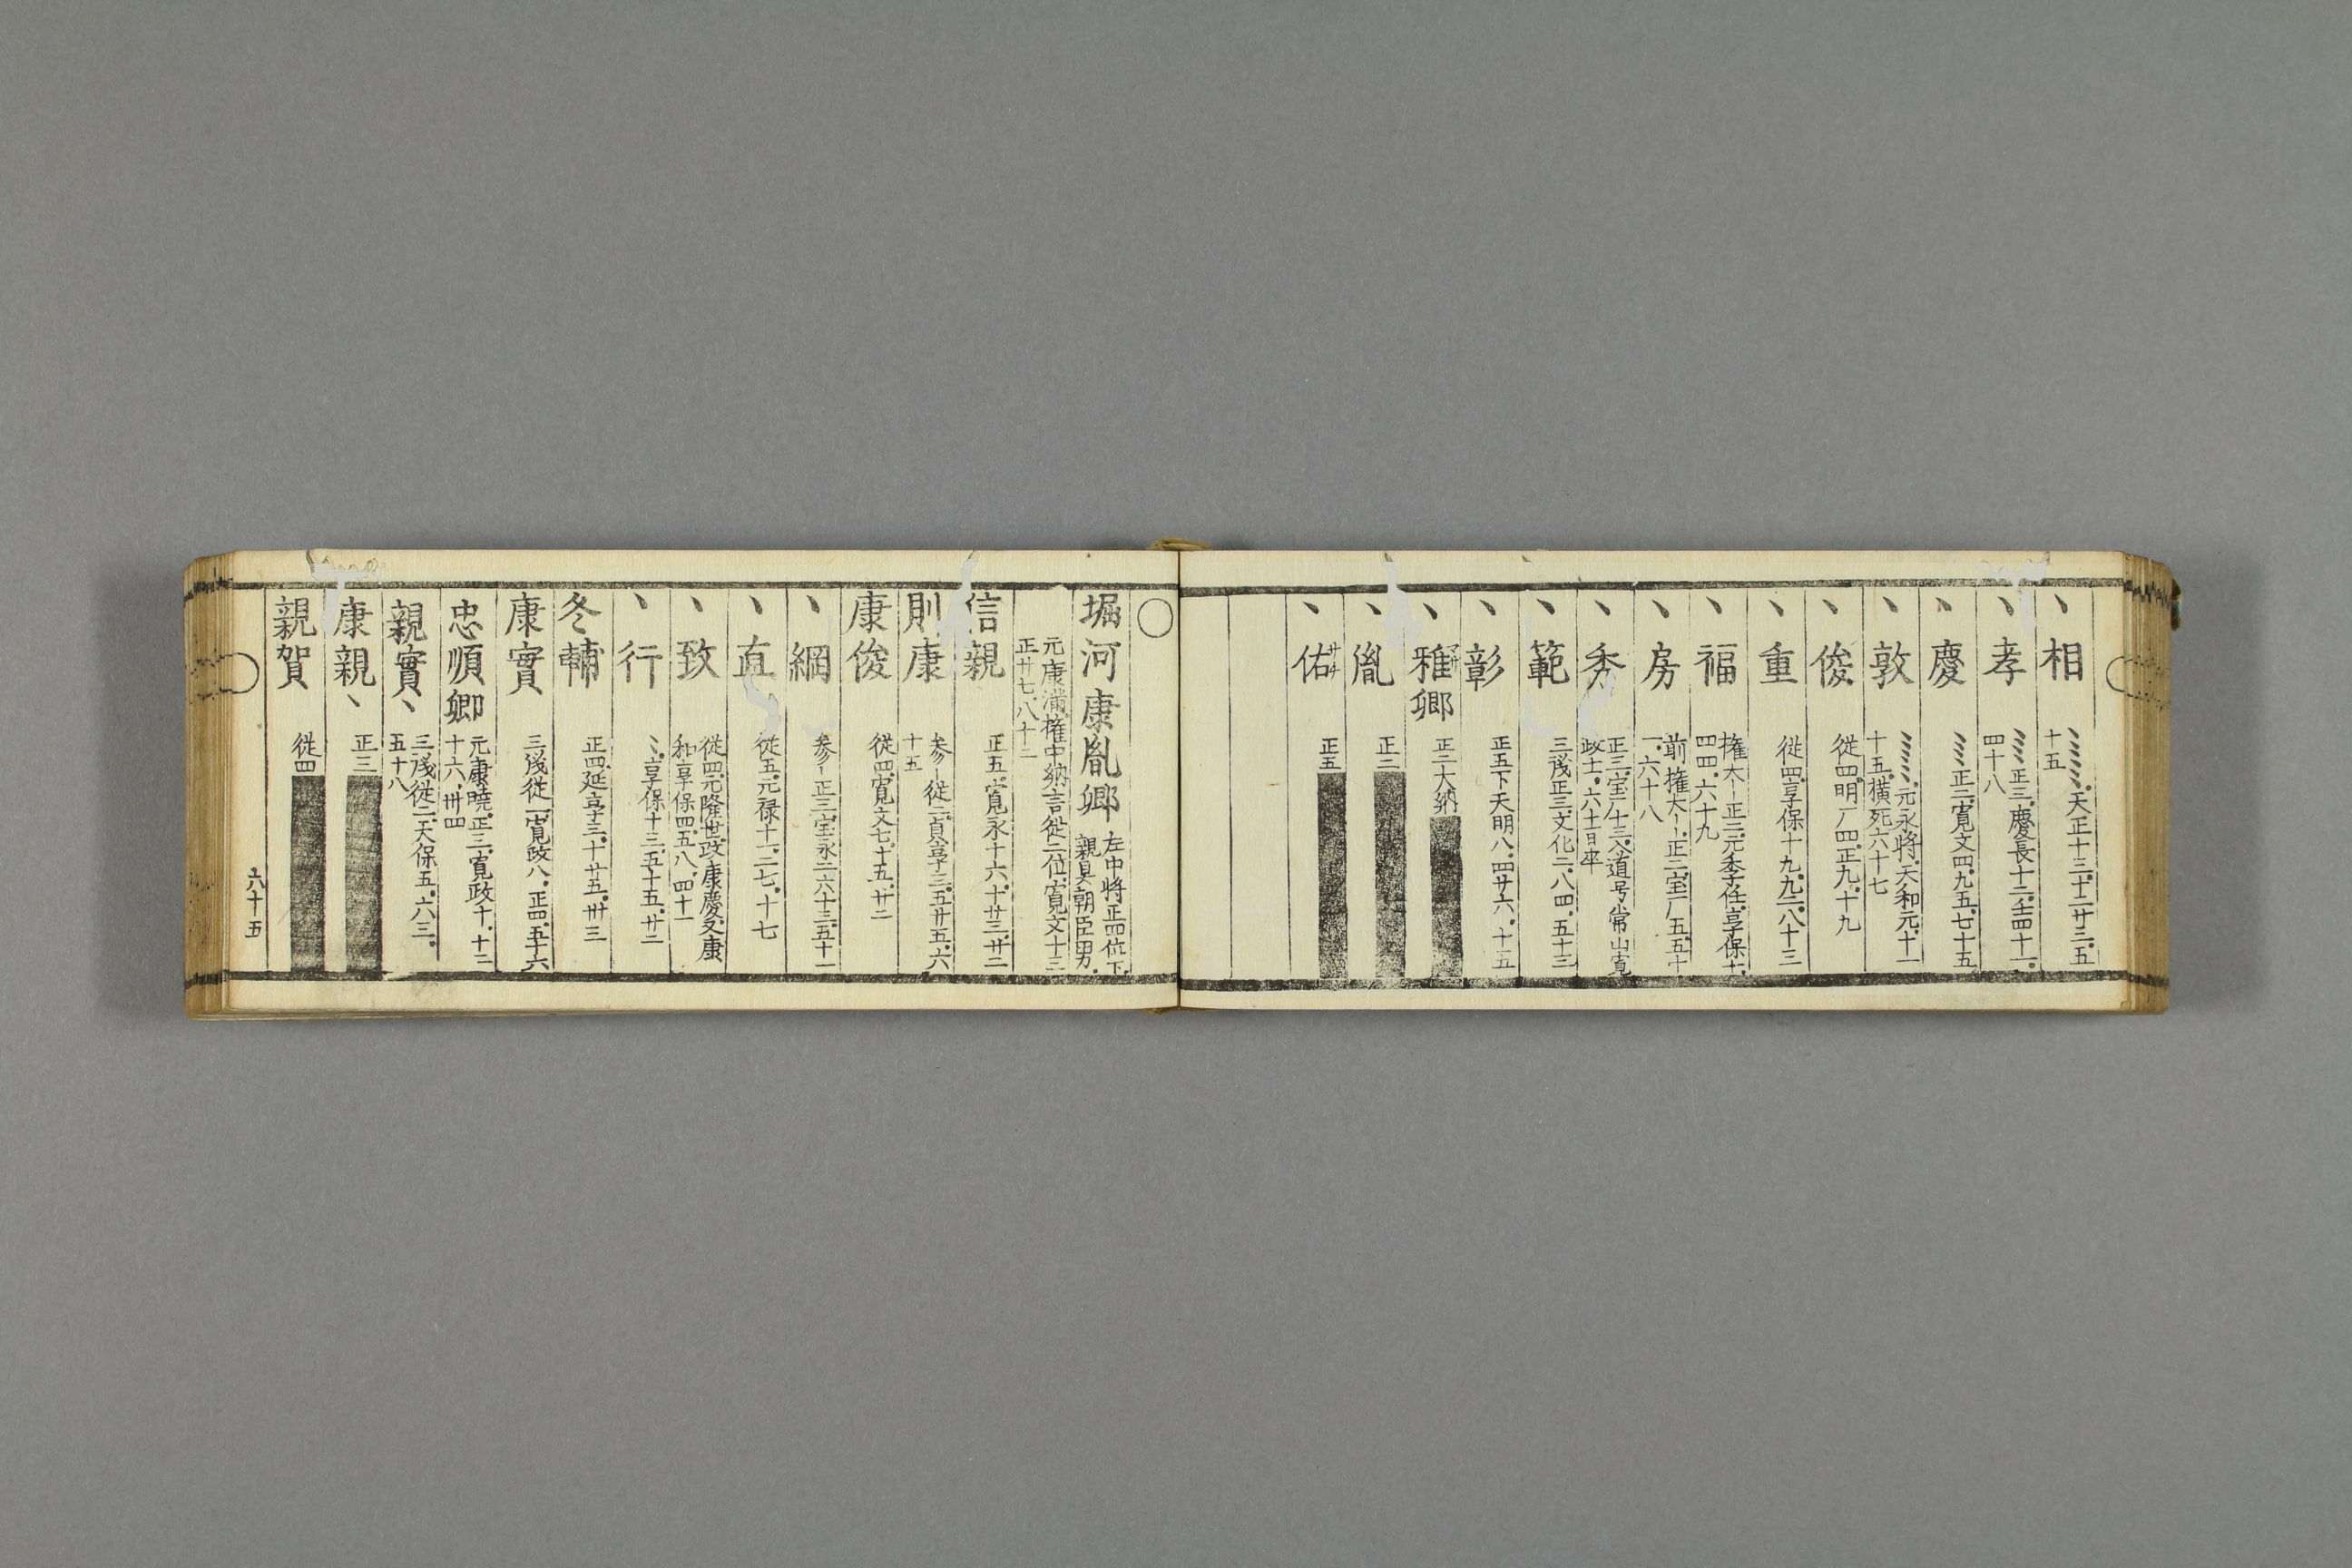 丶相 丶丶丶丶丶天正十三十二廿三五十五
丶孝 丶丶丶丶正三慶長十二壬四十一四十八
丶慶 丶丶丶正二寛文四九五七十五
丶敦 丶丶丶丶丶元永将天和元十一十五横死六十七
丶俊 従四明厂四正九十九
丶重 従四享保十九九二八十三
丶福 権大丨正二元季任享保十四四六十九
丶房 前権大丨正二宝厂五五十一六十八
丶秀 正三宝厂十三入道号常山寛政十一六十一日卒
丶範 三彧正三文化二八四五十三
丶彰 正五下天明八四廿六十五
丶雅卿 正二大納
丶胤 正二
丶佑 正五
堀河康胤卿 左中将正四位下親具朝臣男
元康満権中納言従二位寛文十三正廿七八十二
信親 正五寛永十六十廿三廿二
則康 参丨従二貞享三五廿五六十五
康俊 従四寛文七十五廿二
丶綱 参丨正三宝永二六十三五十一
丶直 従五元禄十二二七十七
丶致 従四元隆世改康慶又康和享保四五八四十一
丶行 丶丶享保十三五十五廿二
冬輔 正四延享三十廿五卅三
康實 三彧従二寛政八正四五十六
忠順卿 元康暁正三寛政十十二十六卅四
親實丶 三彧従二天保五六三五十八
康親丶 正三
親賀 従四
六十五